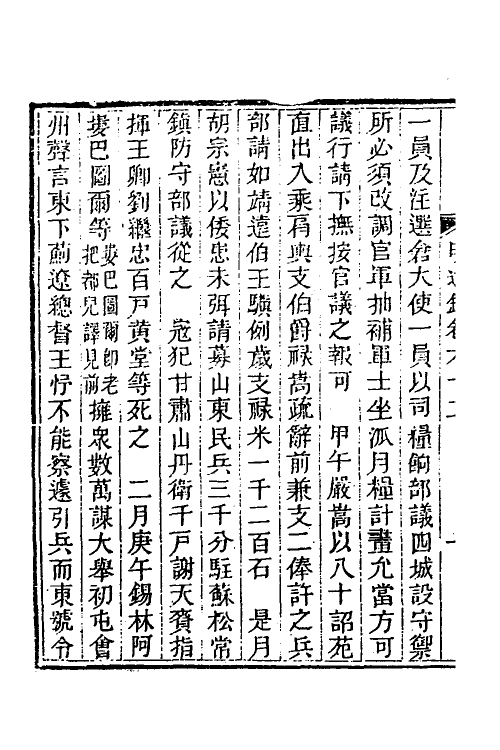 一員及注選倉大使一員以司糧餉部議四城設守禦
所必須改調官軍抽補軍士坐派月糧計畫允當方可
議行請下撫按官議之報可　甲午嚴嵩以八十詔苑
直出入乘肩輿支伯爵祿嵩疏辭前兼支二俸許之兵
部請如靖遠伯王驥例歲支祿米一千二百石　是月
胡宗憲以倭患未弭請募山東民兵三千分駐蘇松常
鎮防守部議從之　寇犯甘肅山丹衛千戶謝天賚指
揮王卿劉繼忠百戶黃堂等死之　二月庚午錫林阿
婁巴圖爾等婁巴圖爾卽老把都兒譯見前擁眾數萬謀大舉初屯會
州聲言東下薊遼總督王忬不能察遽引兵而東號令